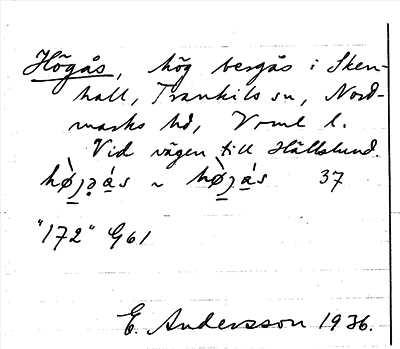 Högås, hög bergås i Sken-
hall, Trankils sn, Nord-
marks hd, Vrml l.
Vid vägen till Hällslund.
hø̀jə̣ás ~ hø̀jás 37
"172" G61
E. Andersson 1936.